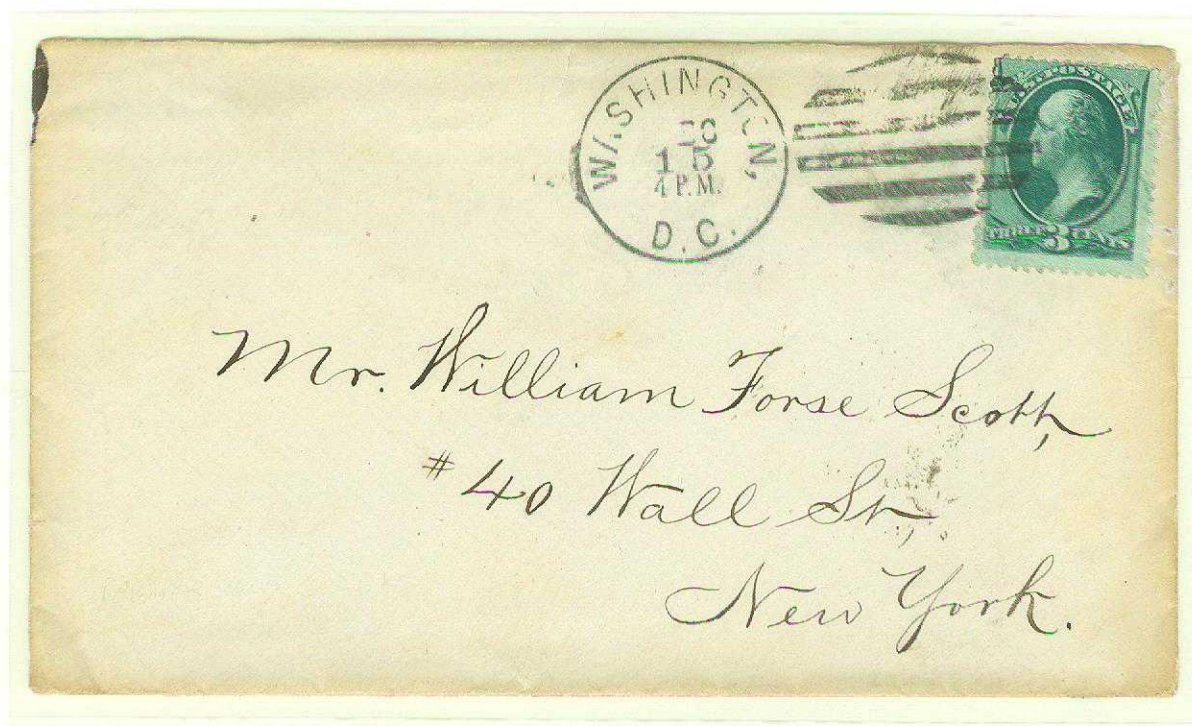 WASHINGTON,
15
4 P.M.
D.C.
U.S. POSTAGE
THREE 3 CENTS
Mr. William Forse Scott,
#40 Wall St,
New York.